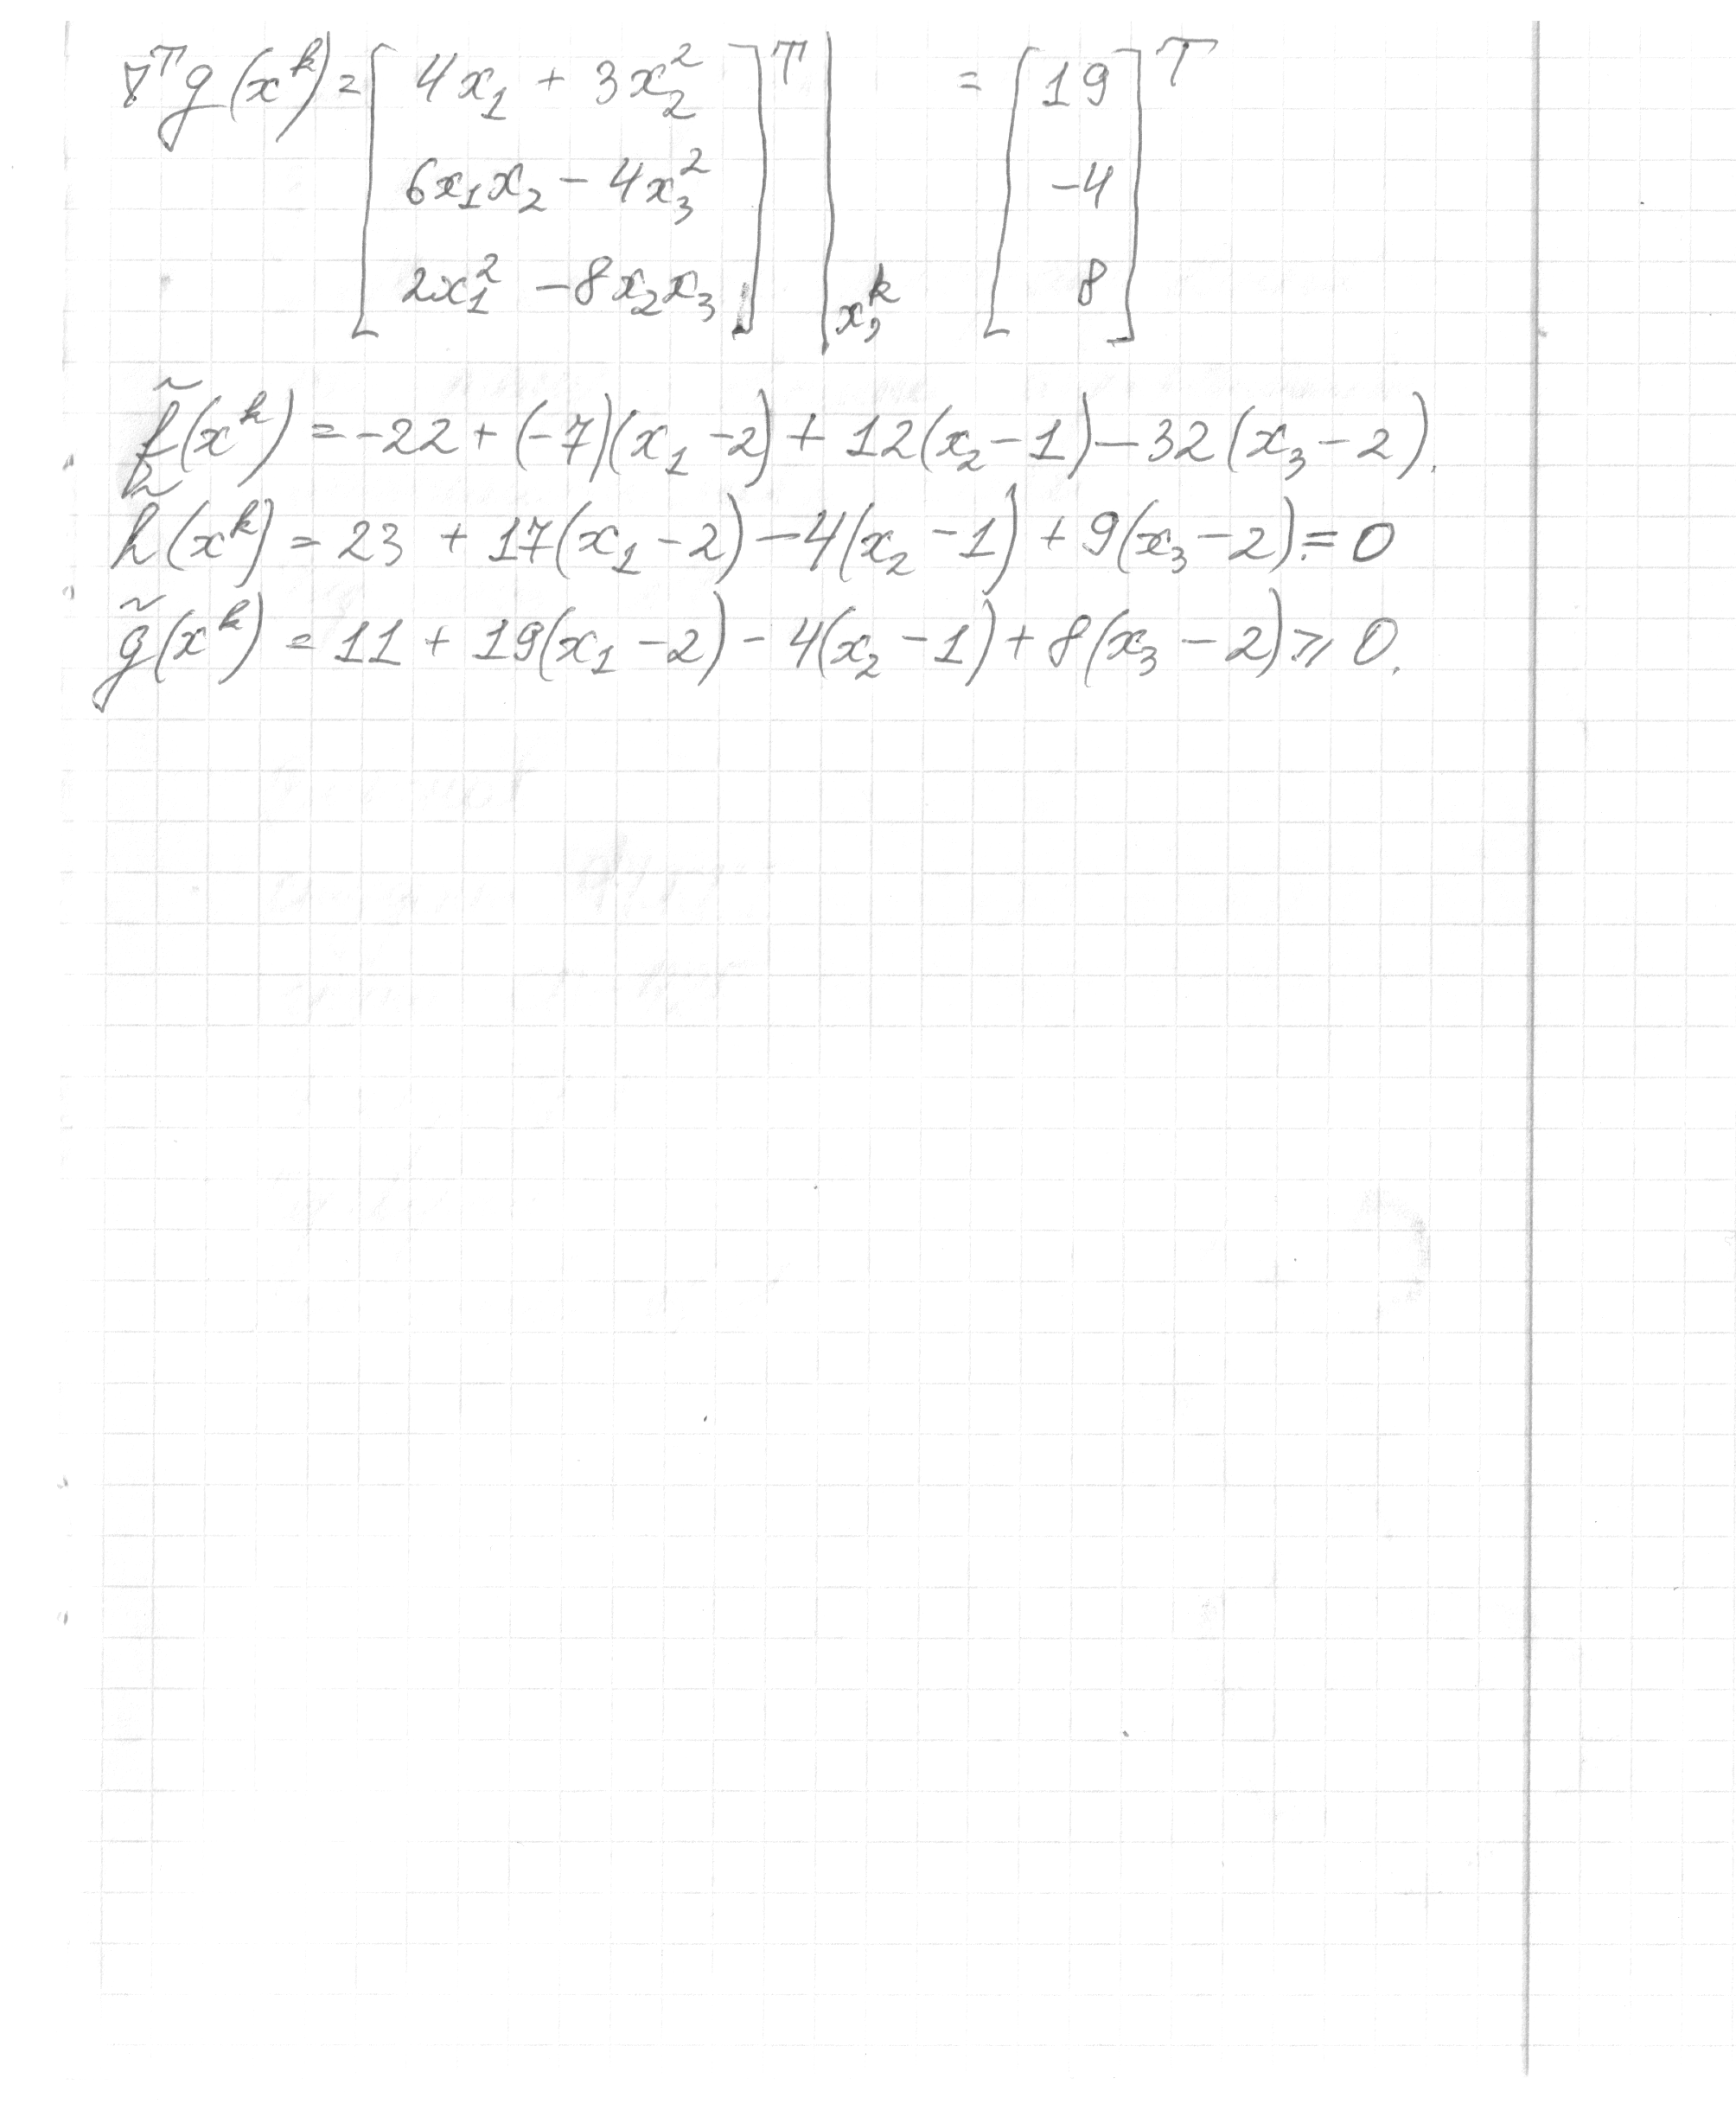 ∇ᵀg(xᵏ) = [4x₁ + 3x₂²; 6x₁x₂ − 4x₃²; 2x₁² − 8x₂x₃]ᵀ |xᵏ, = [19; −4; 8]ᵀ
f̃(xᵏ) = −22 + (−7)(x₁ − 2) + 12(x₂ − 1) − 32(x₃ − 2).
h̃(xᵏ) = 23 + 17(x₁ − 2) − 4(x₂ − 1) + 9(x₃ − 2) = 0
g̃(xᵏ) = 11 + 19(x₁ − 2) − 4(x₂ − 1) + 8(x₃ − 2) ⩾ 0.